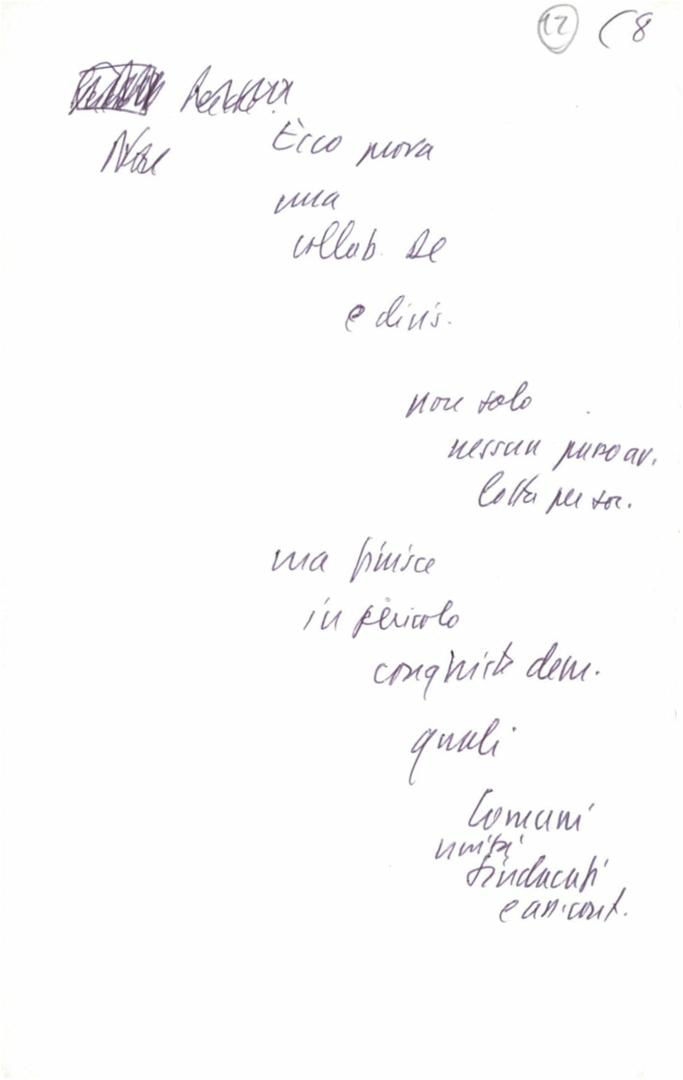 12 (8
Ecco prova
una
collab. De
e divis.
non solo
nessun passo av.
lotta per soc.
ma finisce
in pericolo
conquiste dem.
quali
Comuni
uniti
sindacati
e ass. cont.